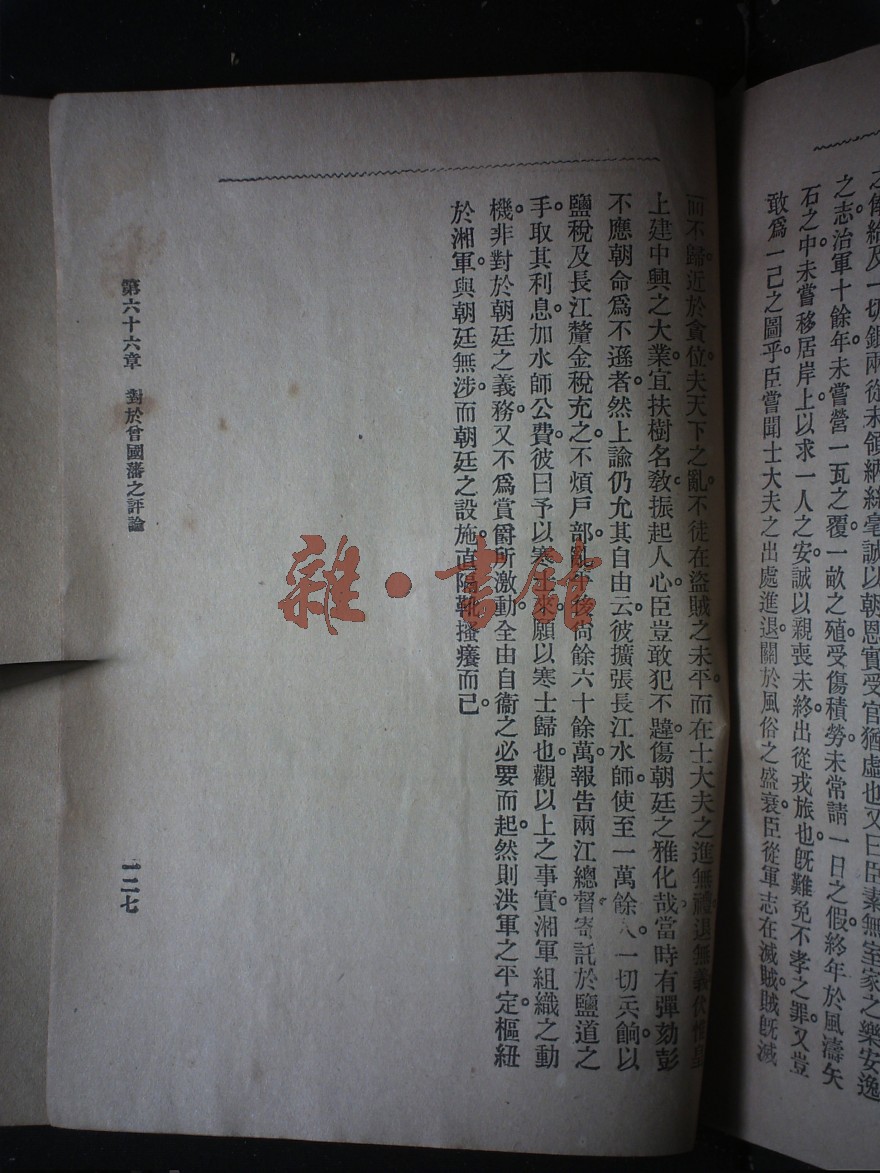 之俸給及一切銀兩從未領納絲毫誠以朝恩實受官猶虛也又曰臣素無室家之樂安逸
之志治軍十餘年未嘗營一瓦之覆一畝之殖受傷積勞未常請一日之假終年於風濤矢
石之中未嘗移居岸上以求一人之安誠以親喪未終出從戎旅也旣難免不孝之罪又豈
敢爲一己之圖乎臣嘗聞士大夫之出處進退關於風俗之盛衰臣從軍志在滅賊賊旣滅
而不歸近於貪位夫天下之亂不徒在盜賊之未平而在士大夫之進無禮退無義伏惟皇
上建中興之大業宜扶樹名敎振起人心臣豈敢犯不韙傷朝廷之雅化哉當時有彈劾彭
不應朝命爲不遜者然上諭仍允其自由云彼擴張長江水師使至一萬餘人一切兵餉以
鹽稅及長江釐金稅充之不煩戶部亂後尙餘六十餘萬報告兩江總督寄託於鹽道之
手取其利息加水師公費彼曰予以寒士來願以寒士歸也觀以上之事實湘軍組織之動
機非對於朝廷之義務又不爲賞爵所激動全由自衞之必要而起然則洪軍之平定樞紐
於湘軍與朝廷無涉而朝廷之設施直隔靴搔癢而已
第六十六章　對於曾國藩之評論
一二七
雜·書館